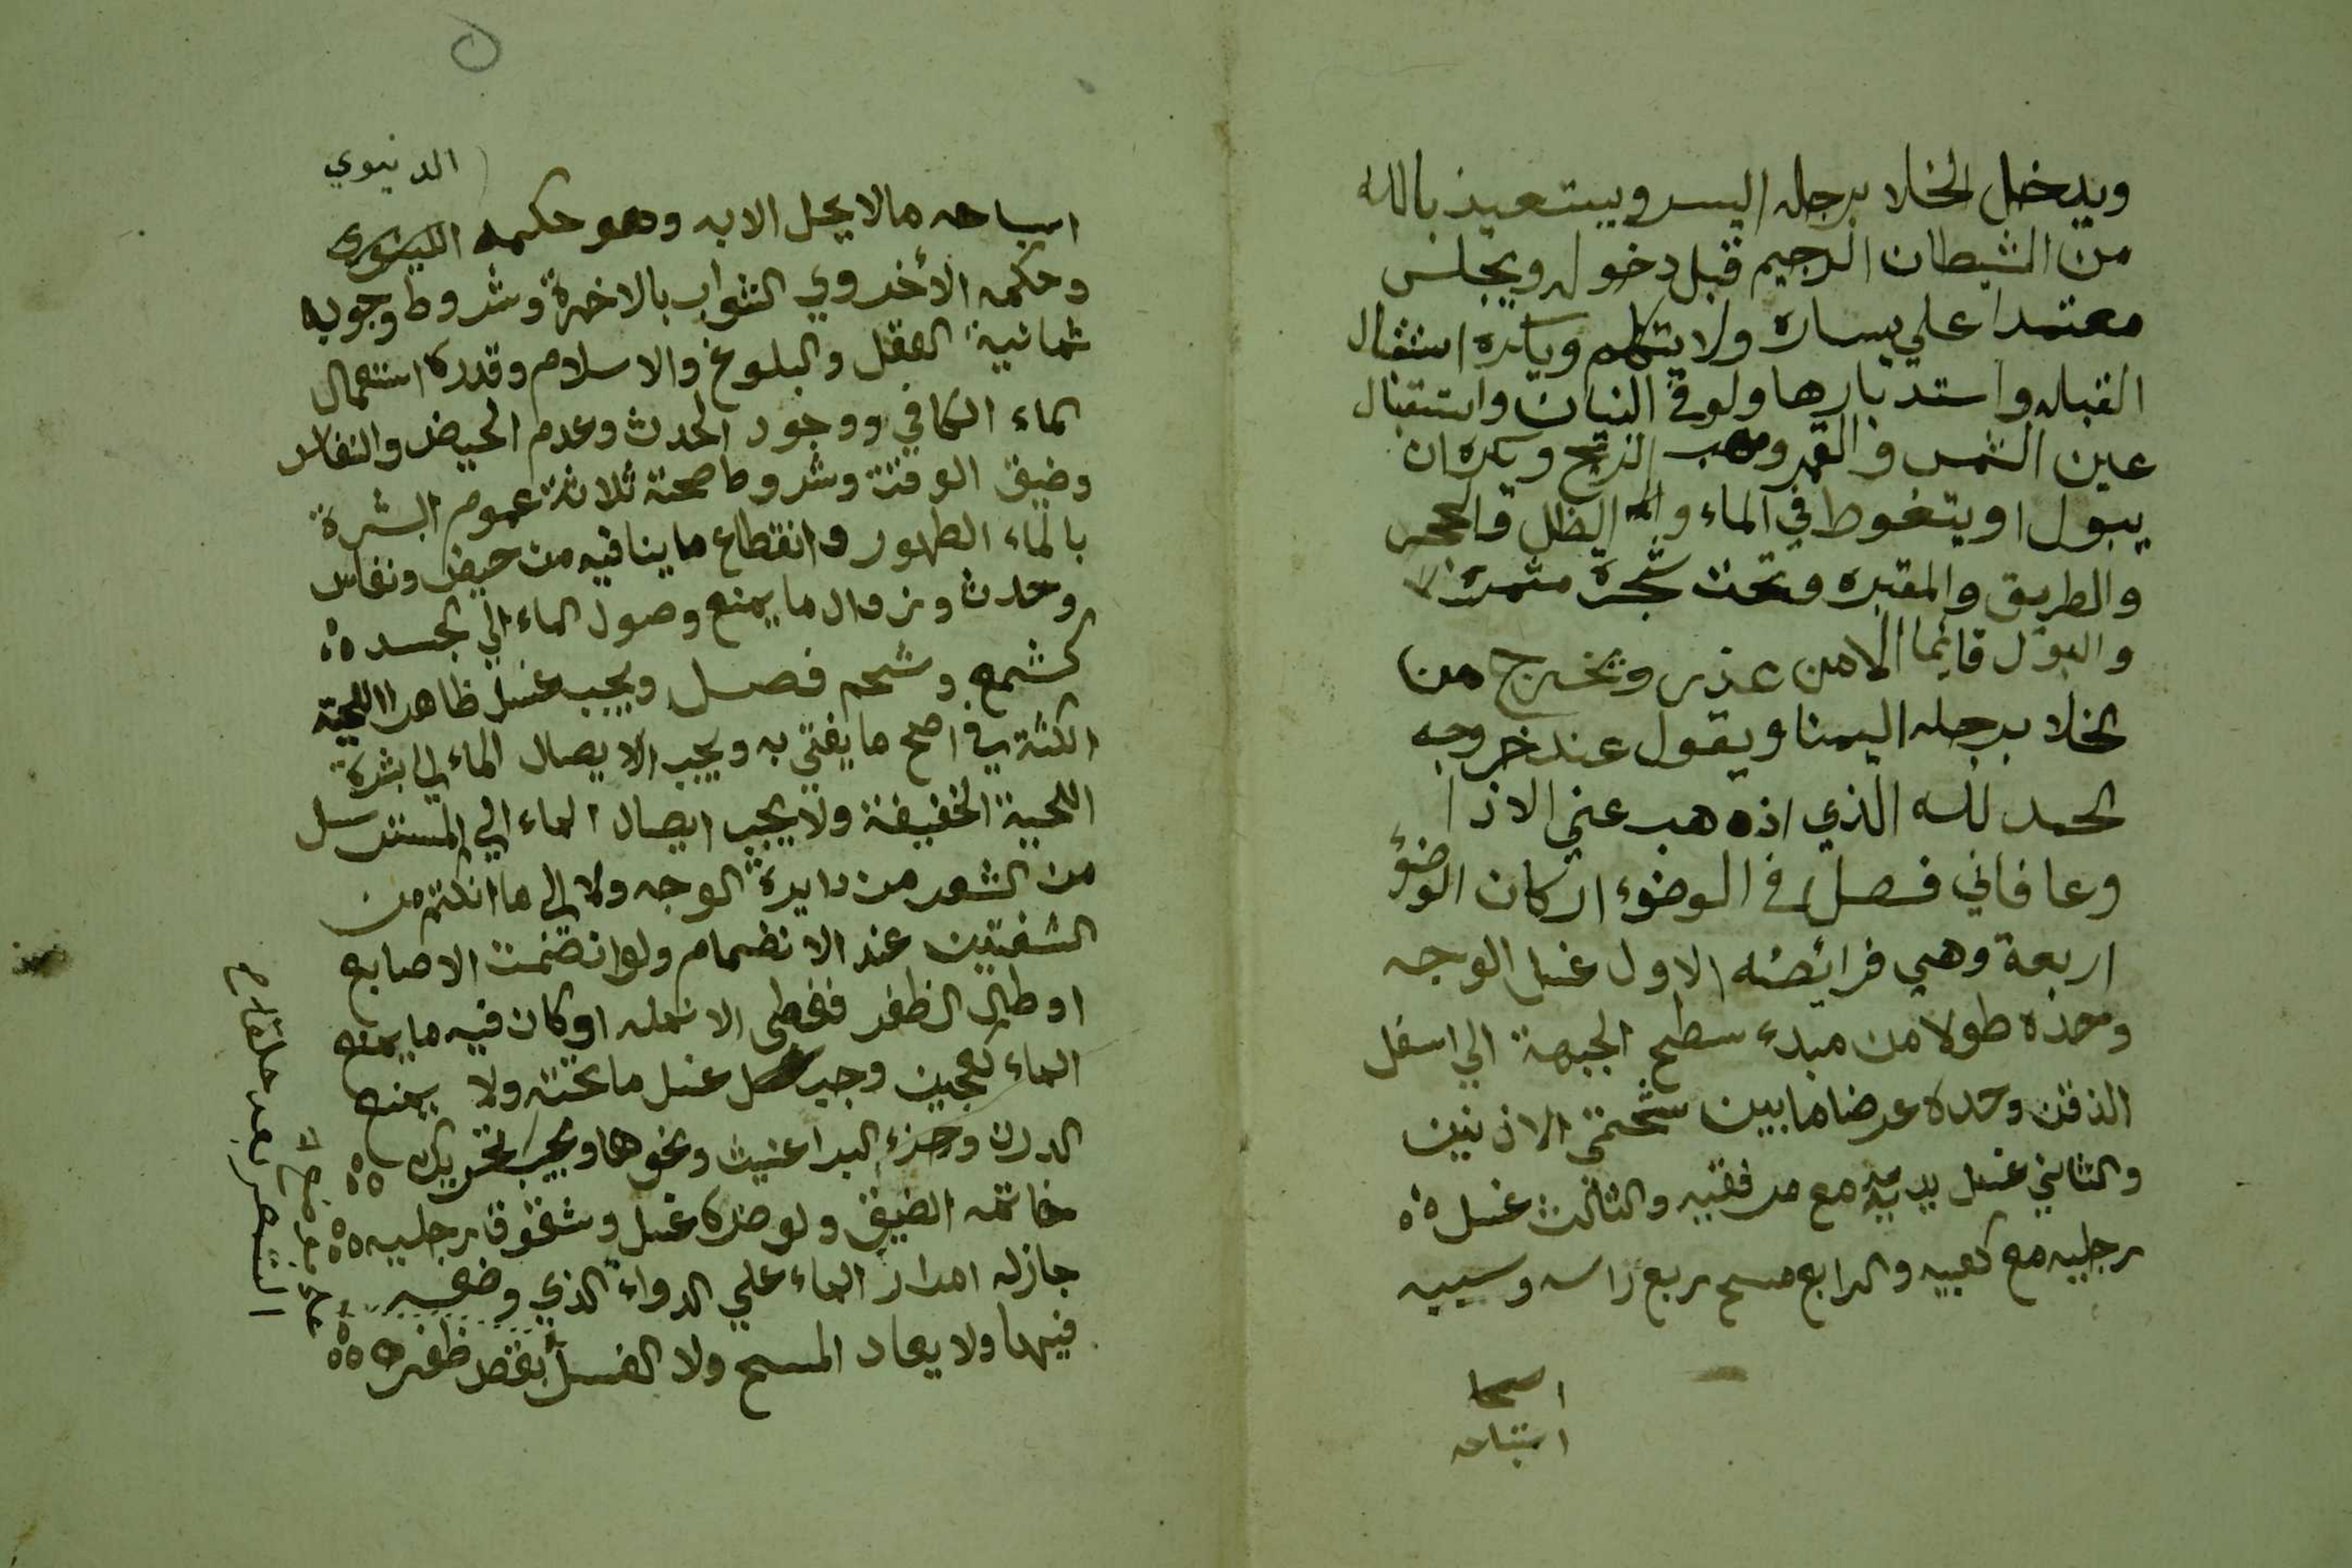 ويدخل الخلا برجله اليسر ويستعيذ بالله
من الشيطان الرجيم قبل دخوله ويجلس
معتمدا علي يساره ولا يتكلم ويكره استقبال
القبله واستدبارها ولو في البنيان واستقبال
عين الشمس والقمر ومهب الريح ويكره ان
يبول او يتغوط في الماء و الظل والحجر
والطريق والمقبره وتحت شجرة مثمرة
والبول قائما الا من عذر ويخرج من
الخلا برجله اليمنا ويقول عند خروجه
الحمد لله الذي اذهب عني الاذا
وعافاني فصل في الوضوء اركان الوضوء
اربعة وهي فرائضه الاول غسل الوجه
وحده طولا من مبدء سطح الجبهة الي اسفل
الذقن وحده عرضا ما بين شحمتي الاذنين
والثاني غسل يديه مع مرفقيه والثالث غسل ه
رجليه مع كعبيه والرابع مسح ربع راسه وسببه
استباحه
الدنيوي
استباحه ما لا يحل الا به وهو حكمه
وحكمه الأخروي الثواب بالاخرة وشروط وجوبه
ثمانية العقل والبلوغ والاسلام وقدرة استعمال
الماء الكافي ووجود الحدث وعدم الحيض والنفاس
وضيق الوقت وشروط صحته ثلاثة عموم البشرة
بالماء الطهور وانقطاع ما ينافيه من حيض ونفاس
وحدث وزوال ما يمنع وصول الماء الي الجسد ه
كشمع وشحم فصل ويجب غسل ظاهر اللحية
الكثة في اصح ما يفتي به ويجب الايصال الماء الي بشرة
اللحية الخفيفة ولا يجب ايصال الماء الي المسترسل
من الشعر من دايرة الوجه ولا الي ما انكتم من
الشفتين عند الانضمام ولو انضمت الاصابع
او طال الظفر فغطى الانمله او كان فيه ما يمنع
الماء كعجين وجب غسل ما تحته ولا يمنع
الدرن وخرء البراغيث ونحوها ويجب تحريك ه
خاتمه الضيق ولو ضره غسل وشقوق رجليه ه
جاز له امرار الماء علي الدواء الذي وضعه
فيها ولا يعاد المسح ولا الغسل بقص ظفره ه
الشعر بعد حلقه